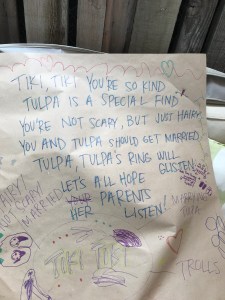 TIKI, TIKI YOU'RE SO KIND
TULPA IS A SPECIAL FIND
YOU'RE NOT SCARY, BUT JUST HAIRY
YOU AND TULPA SHOULD GET MARRIED
TULPA, TULPA'S RING WILL
GLISTEN
LET'S ALL HOPE
HER PARENTS
LISTEN!
HAIRY!
NOT SCARY!
MARRIED
MARRYING
TULPA
TIKI TIKI
TROLLS